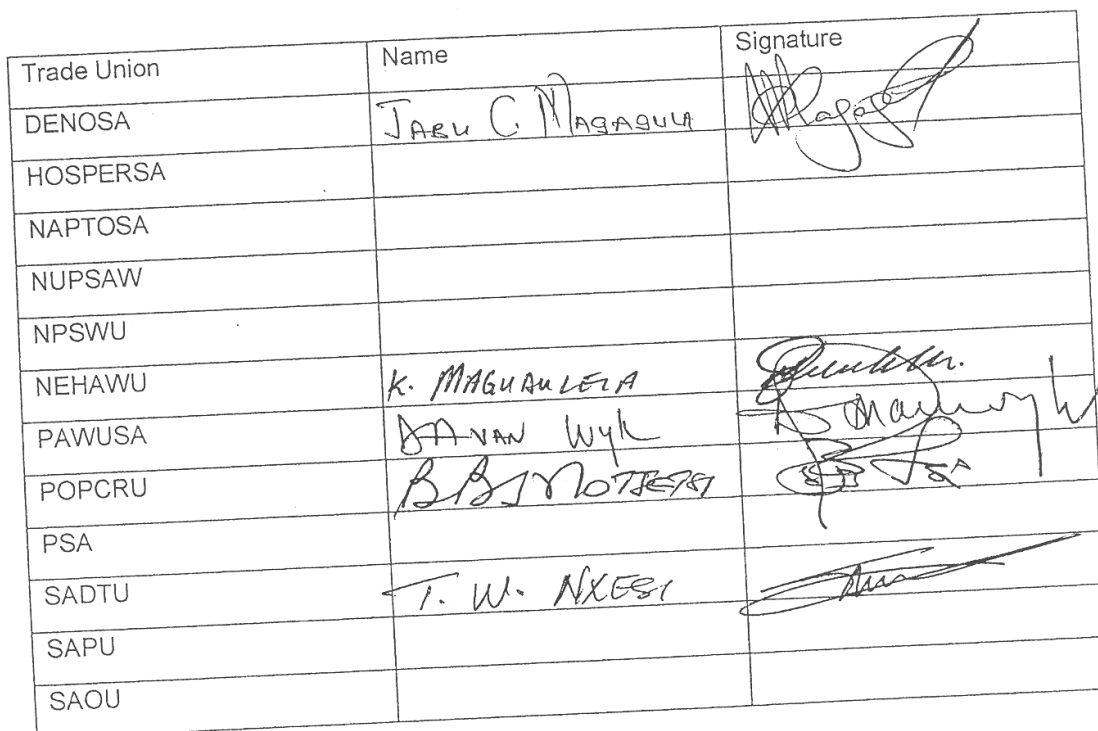 Trade Union Name Signature
DENOSA JABU C MAGAGULA
HOSPERSA
NAPTOSA
NUPSAW
NPSWU
NEHAWU K.
PAWUSA VAN WYK
POPCRU
PSA
SADTU T. W. NXESI
SAPU
SAOU